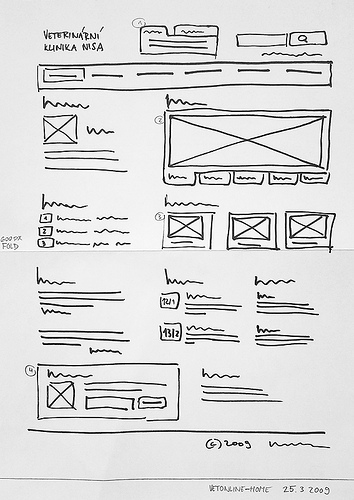 VETERINÁRNÍ
KLINIKA NISA
1
2
1
2
3
3
FOLD
12/1
13/2
4
(c) 2009
VETONLINE-HOME 25.3 2009